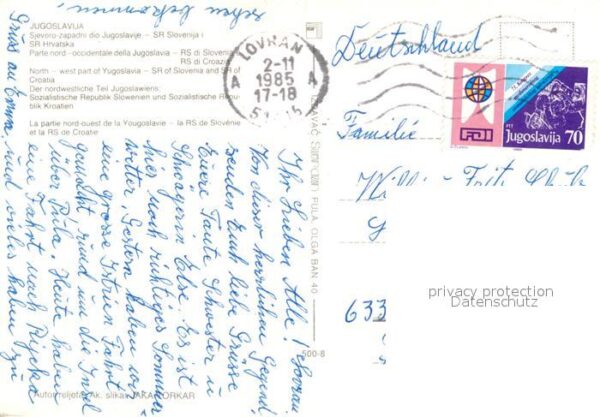 JUGOSLAVIJA
Sjevero-zapadni dio Jugoslavije — SR Slovenija i
SR Hrvatska
Parte nord-occidentale della Jugoslavia — RS di Slovenia
RS di Croazia
North — west part of Yugoslavia — SR of Slovenia and SR of
Croatia
Der nordwestliche Teil Jugoslawiens:
Sozialistische Republik Slowenien und Sozialistische Republik Kroatien
La partie nord-ouest de la Yougoslavie — la RS de Slovénie
et la RS de Croatie
LOVRAN
2-11
1985
17-18
A A
Deutschland
Familie
Jugoslavija 70
633
Ihr Lieben Alle! Lovran
Von dieser herrlichen Gegend
senden Euch liebe Grüsse
Euere Tante Schwester u
Schwägerin Else. Es ist
hier noch richtiges Sommer
wetter. Gestern haben wir
eine grosse Istrien Fahrt
gemacht rund um die Insel
über Pula. Heute haben
eine Fahrt nach Rijeka
und vieles haben zu
sehen bekommen,
Gruss an Erna,
PULA, OLGA BAN 40
500-8
privacy protection
Datenschutz